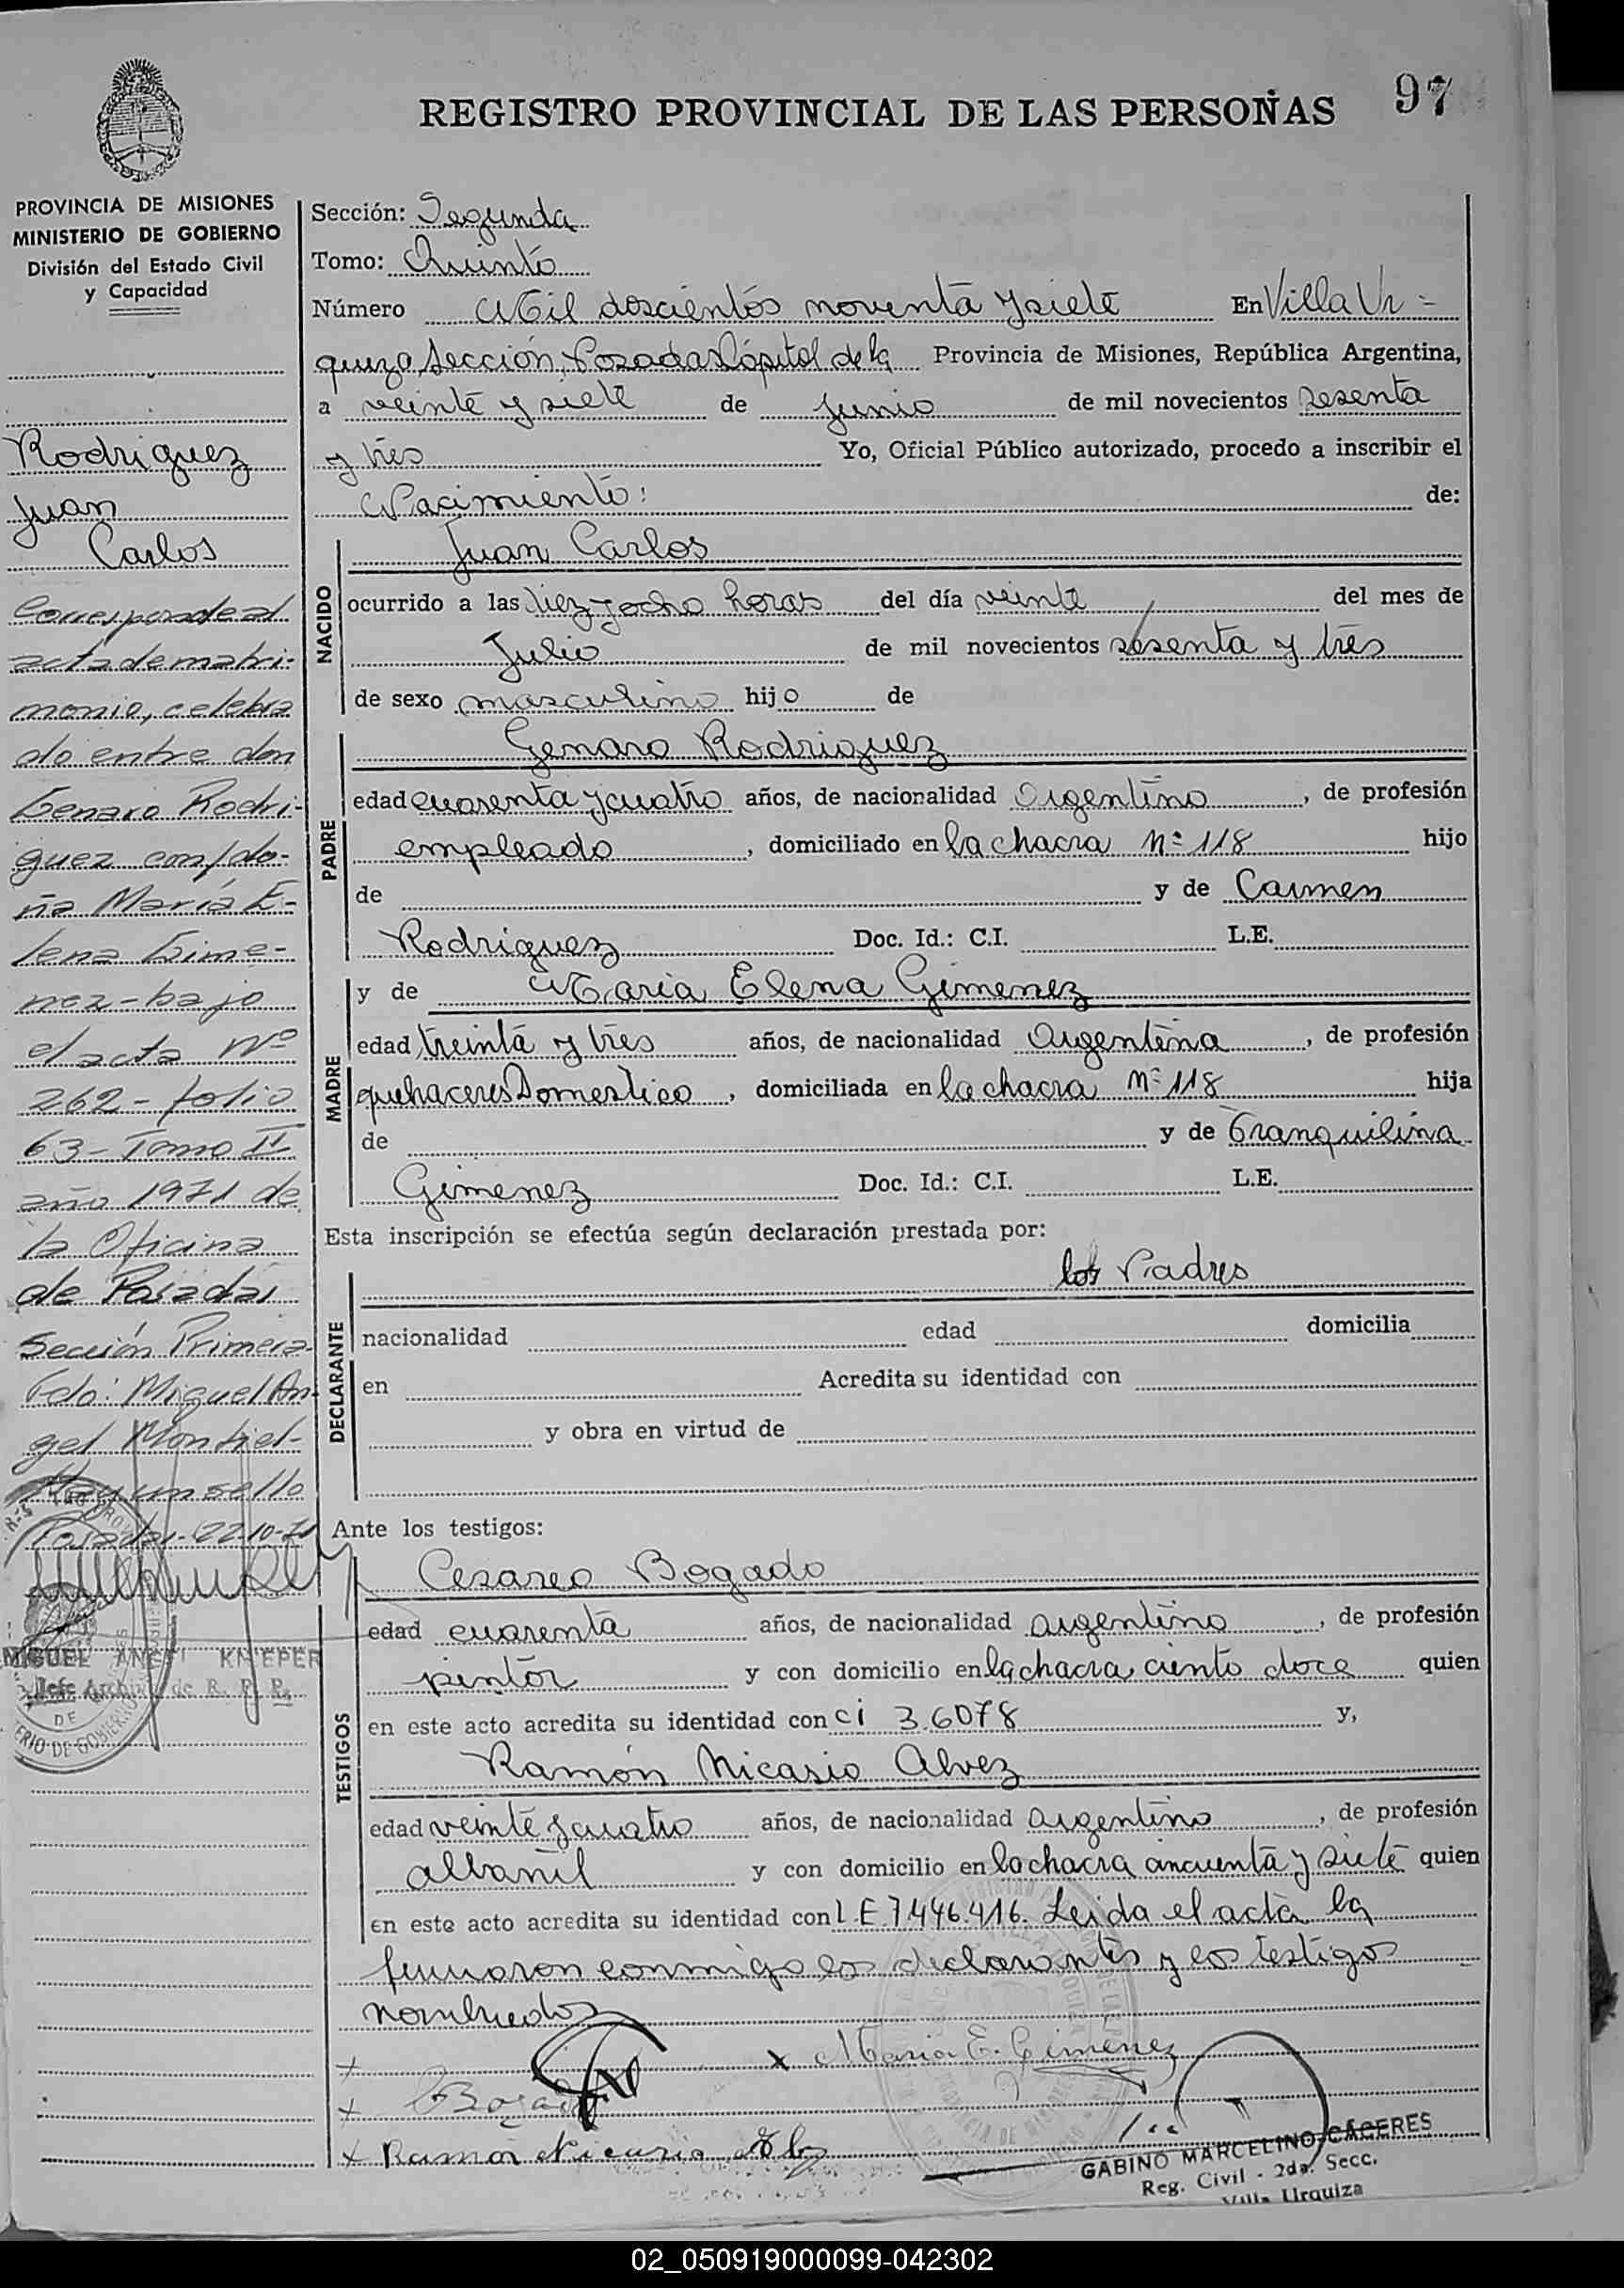 97
REGISTRO PROVINCIAL DE LAS PERSONAS
PROVINCIA DE MISIONES
MINISTERIO DE GOBIERNO
División del Estado Civil
y Capacidad
Rodriguez
Juan
Carlos
Corresponde al
acta de matri-
monio, celebra
do entre don
Genaro Rodri-
guez con do-
ña María E-
lena Gime-
nez-bajo
el acta Nº
262- folio
63- Tomo II
año 1971 de
la Oficina
de Posadas
Sección Primera
Fdo: Miguel An-
gel Montiel-
Hay un sello
Posadas-22-10-71
MIGUEL ANGEL KNEPER
Jefe Archivo de R. P. P.
Sección: Segunda
Tomo: Quinto
Número Mil doscientos noventa y siete En Villa Ur=
quiza Sección, Posadas Cápital de la Provincia de Misiones, República Argentina,
a veinte y siete de Junio de mil novecientos sesenta
y tres Yo, Oficial Público autorizado, procedo a inscribir el
Nacimiento: de:
NACIDO
Juan Carlos
ocurrido a las diez y ocho horas del día veinte del mes de
Julio de mil novecientos sesenta y tres
de sexo masculino hijo de
PADRE
Genaro Rodriguez
edad cuarenta y cuatro años, de nacionalidad Argentino, de profesión
empleado, domiciliado en la chacra Nº 118 hijo
de y de Carmen
Rodriguez Doc. Id.: C.I. L.E.
MADRE
y de Maria Elena Gimenez
edad treinta y tres años, de nacionalidad Argentina, de profesión
quehaceres Domestico, domiciliada en la chacra Nº 118 hija
de y de Tranquilina
Gimenez Doc. Id.: C.I. L.E.
Esta inscripción se efectúa según declaración prestada por:
DECLARANTE
los Padres
nacionalidad edad domicilia
en Acredita su identidad con
y obra en virtud de
Ante los testigos:
TESTIGOS
Cesareo Bogado
edad cuarenta años, de nacionalidad argentino, de profesión
pintor y con domicilio en la chacra ciento doce quien
en este acto acredita su identidad con ci 36078 y,
Ramón Nicasio Alvez
edad veinte y cuatro años, de nacionalidad argentino, de profesión
albañil y con domicilio en la chacra cincuenta y siete quien
en este acto acredita su identidad con L.E. 7.446.416. Leida el acta la
firmaron conmigo los declarantes y los testigos
nombrados
x Maria E. Gimenez
x Bogado
x Ramon Nicasio
GABINO MARCELINO CÁCERES
Reg. Civil - 2da. Secc.
Villa Urquiza
02_050919000099-042302